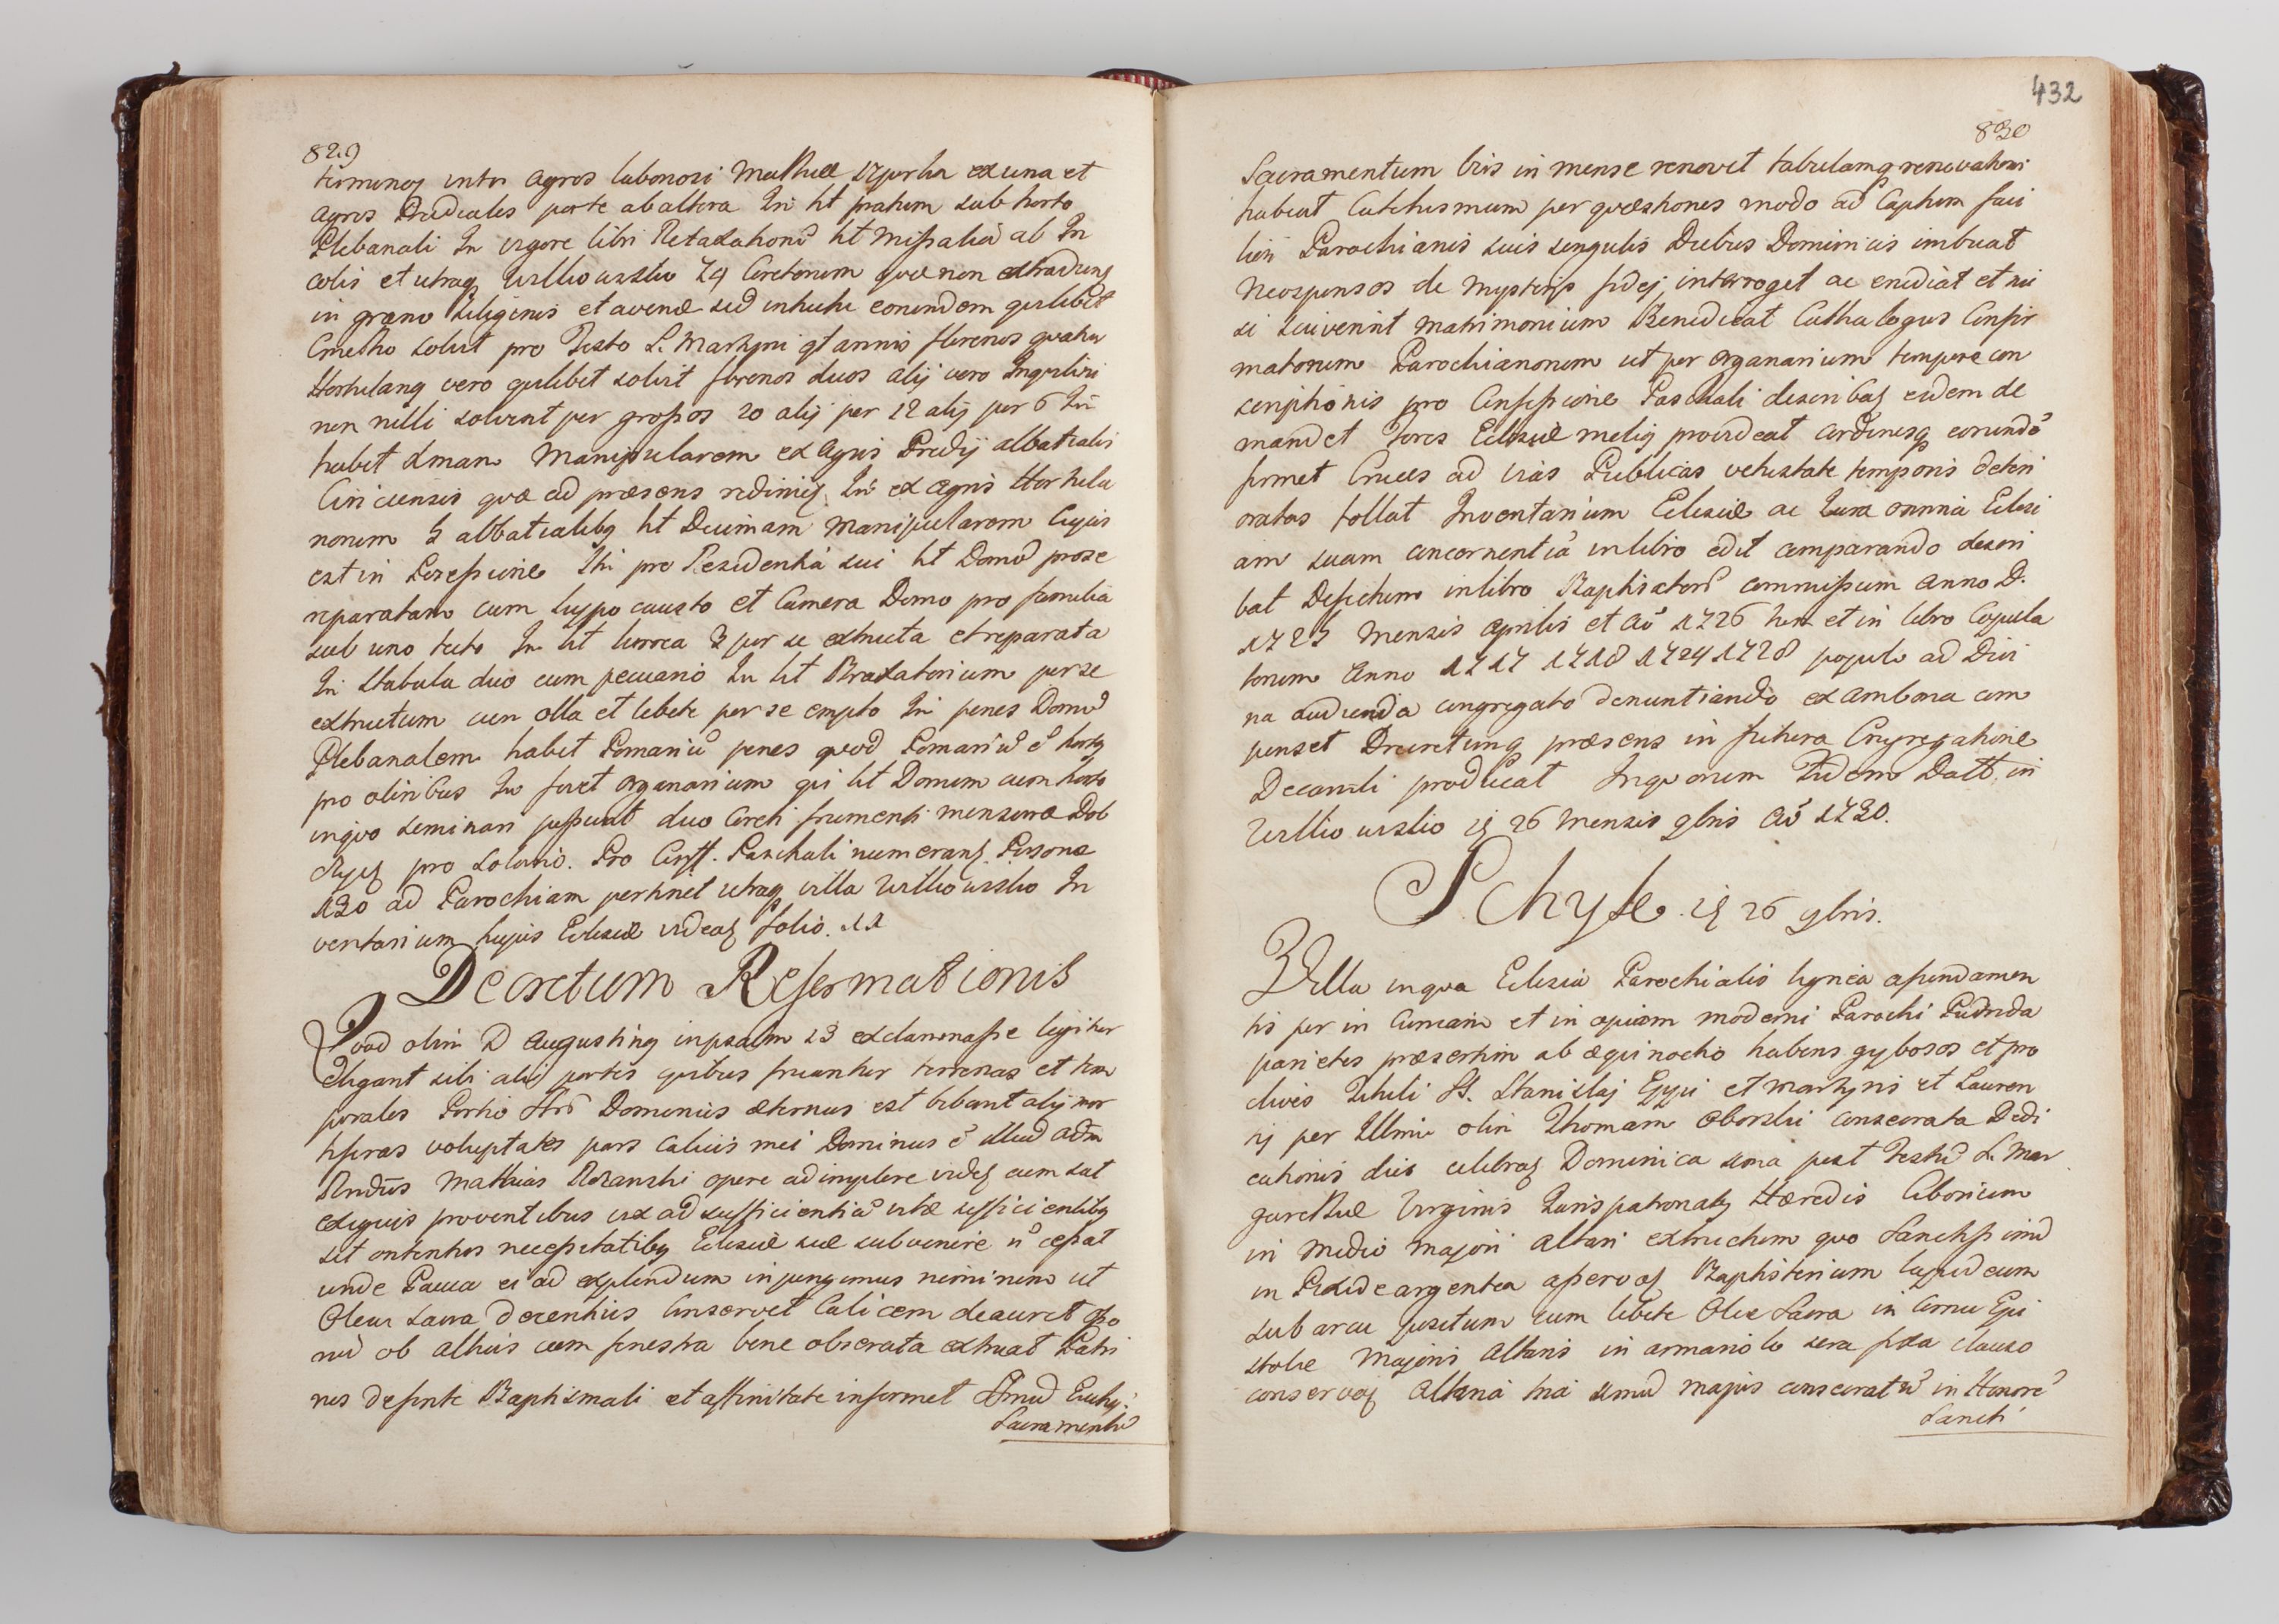 829
terminos inter agros laboriosi Mathiæ ex una et
agros Prædiales parte ab altera In ht pratum sub horto
Plebanali In vigore libri Retaxationis ht Missalia ab In
colis et utraq Willkowisko 29 Coretorum quæ non extradunt
in grano siliginis et avenæ sed intuitu eorundem quilibet
Cmetho solvit pro Festo S. Martini qt annis florenos quatuor
Hortulanq vero quilibet solvit florenos duos alij vero Inquilini
non nulli solvunt per grossos 20 alij per 12 alij per 6 In
habet Xmam Manipularem ex Agris Prædij abbatialis
quæ ad præsens In ex agris Hortula
norum 3 abbatialibq ht Decimam Manipularem Cujus
est in Perceptione Ibi pro Residentia sui ht Domū prose
reparatam cum hypocausto et Camera Domo pro familia
sub uno tecto In ht horrea 3 per se extructa et reparata
In Stabula duo cum pecuario In ht Braxatorium per se
extructum cum olla et lebete per se empto In penes Domū
Plebanalem habet Pomariū penes quod Pomariū ē hortq
pro oleribus In fovet Organarium qui ht Domum cum horto
in quo seminari possunt duo Coreti frumenti mensuræ Dob
pro solario. Pro Conff. Paschali numerant Personæ
130 ad Parochiam pertinet utraq villa Willkowisko In
ventarium hujus Eclesiæ videat folio. 11
Decretum Reformationis
Quod olim D Augustinq in psalm 13 exclamasse legitur
eligant sibi alij partes quibus fruantur terrenas et tem
porales Portio Stōr Dominus æternus est bibant alij mor
tiferas voluptates pars calicis mei Dominus ē illud adm
Rndūs Mathias opere adimplere videt cum sat
exiguis proventibus vix ad sufficientiā vitæ sufficientibq
sit contentus necessitatibq Eclesiæ suæ subvenire ñ cessat
unde Pauca ei ad explendum injungimus nimirum ut
Olea Sacra decentius conservet Calicem deauret
ob altius cum fenestra bene obserata extruat Patri
nos de fonte Baptismali et affinitate informet Ssmū Euchj:
Sacramentū
432
830
Sacramentum bis in mense renovet tabulamq renovationi
habeat Catechismum per quæstiones modo ad Captum faci
liori Parochianis suis singulis Diebus Dominicis imbuat
Neosponsos de Mysterijs fidej interroget ac erudiat et ni
si sciverint matrimonium Benedicat Cathalogus Confir
matorum Parochianorum ut per organarium tempore con
scriptionis pro Confessione Paschali describat eidem de
mandet fores Eclesiæ meliq provideat cardinesq eorundē
firmet Cruces ad vias Publicas vetustate temporis deteri
oratas tollat Inventarium Eclesiæ ac Jura omnia Eclesi
am suam concernentiā in libro edit comparando descri
bat Defectum in libro Baptisatorū commissum Anno D.
1723 Mensis Aprilis et Aō 1726 tum et in libro Copula
torum Anno 1717 1718 1724 1728 populo ad Divi
na audienda congregato denuntiando ex ambona com
penset Decretumq præsens in futura Congregatione
Decanali producat Inquorum Fidem Datt. in
Willkowisko 26 Mensis 9bris Aō 1730.
Schyk. 26 9bris.
Villa in qua Eclesia Parochialis lignea a fundamen
tis per in Cuneam et in apiam moderni Parochi Putrida
parietes præsertim ab æquinoctio habens gybosos et pro
clives Tituli St. Stanislaj Eppi et Martyris et Lauren
tij per Illmū olim Thomam Oborski consecrata Dedi
cationis dies celebrat Dominica ima post Festū S. Mar
garethæ Virginis Jurispatronatq Hæredis Ciborium
in medio majori altari extructum quo Sanctissimū
in Pixide argentea asservat Baptisterium lapideum
sub arcu positum cum lebete Olea Sacra in Cornu Epi
stolæ Majoris Altaris in armariolo sera fixa clauso
conservat Altaria tria imū majus consecratū in Honorē
Sancti